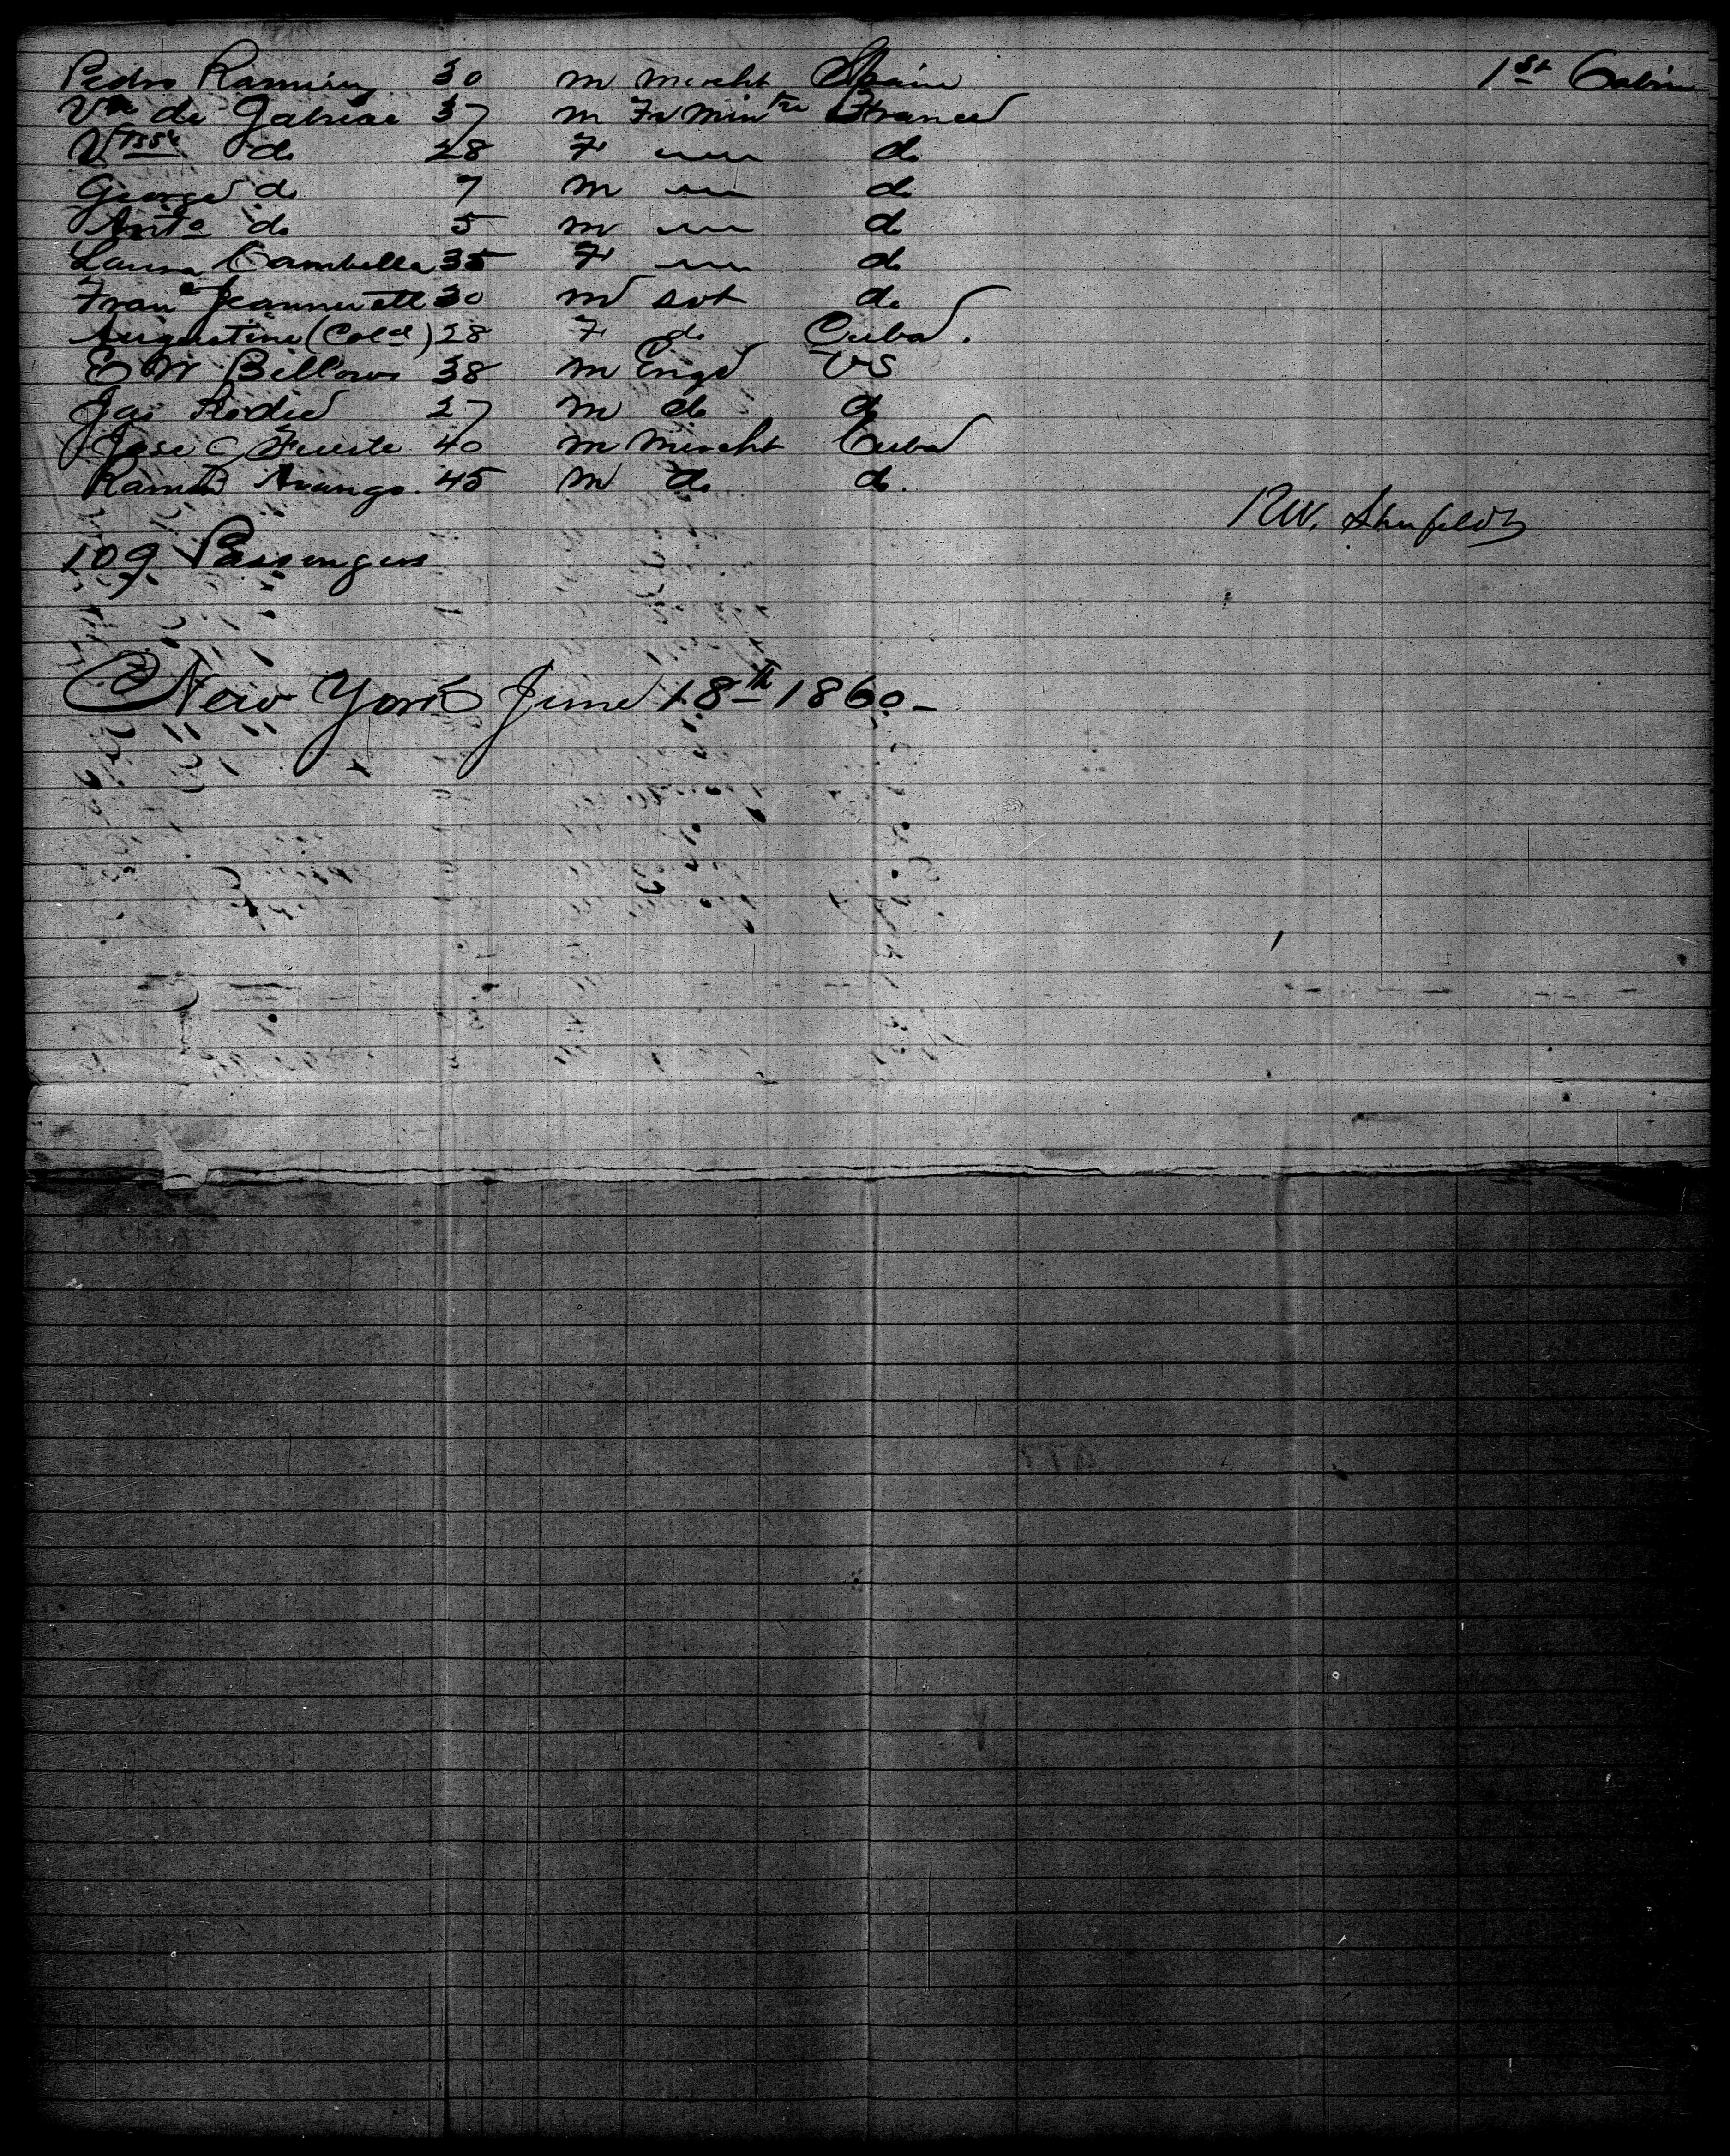 Pedro Ramirez 30 m Mercht Spain 1st Cabin
Vte de Gabriac 37 m Fr Mintre France
Vtsse do 28 F do
George do 7 m do
Anto do 5 m do
Laura Cambella 35 F do
Fran Jeannerett 30 m svt do
Augustine (Cold) 28 F do Cuba.
E W Bellows 38 m Engr US
Jas Rodie 27 m do do
Jose C Fuerte 40 m Mercht Cuba
Ramon Arango. 45 m do do.
R W. Shufeldt
109 Passengers
New York June 18th 1860-